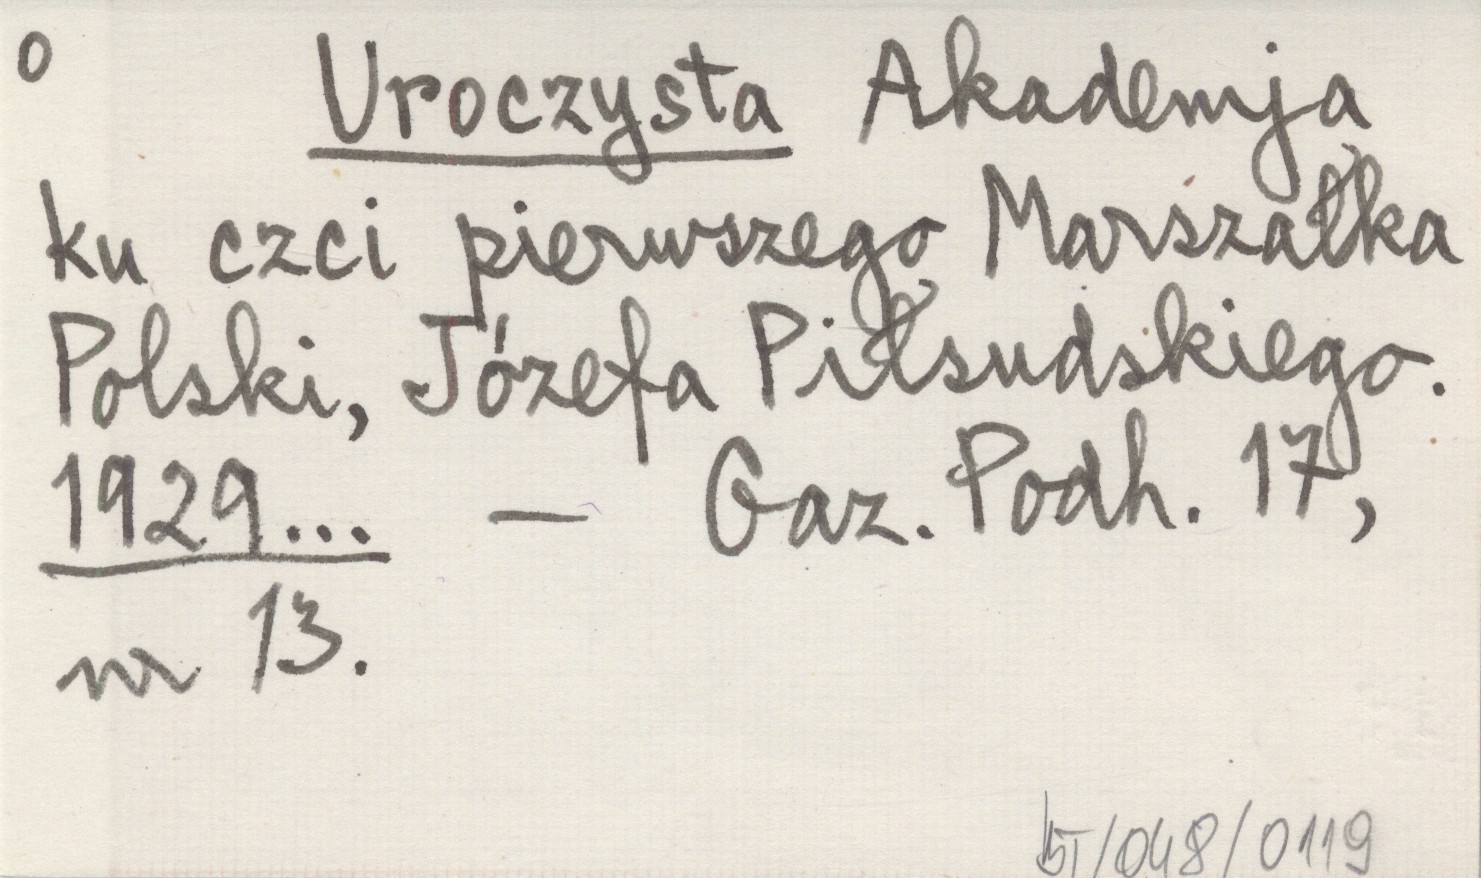 o Uroczysta Akademja
ku czci pierwszego Marszałka
Polski, Józefa Piłsudskiego.
1929... — Gaz. Podh. 17,
nr 13.
/048/0119